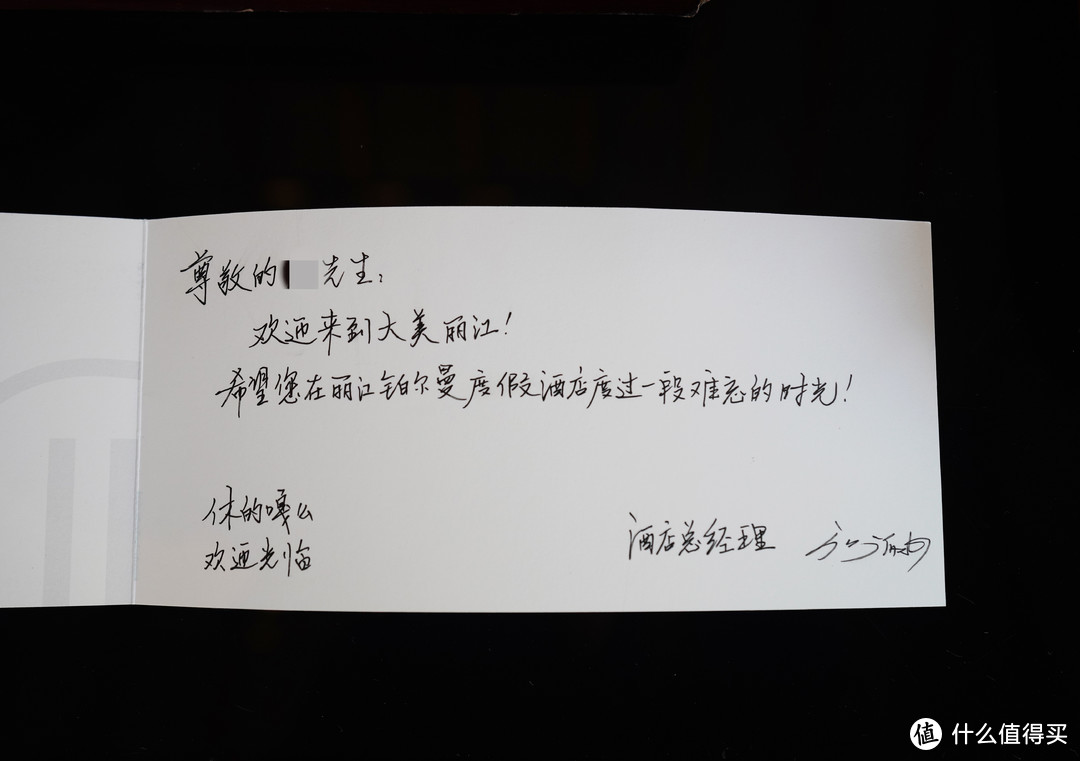 尊敬的 先生：
欢迎来到大美丽江！
希望您在丽江铂尔曼度假酒店度过一段难忘的时光！
休的嘎么
欢迎光临
酒店总经理
值 什么值得买